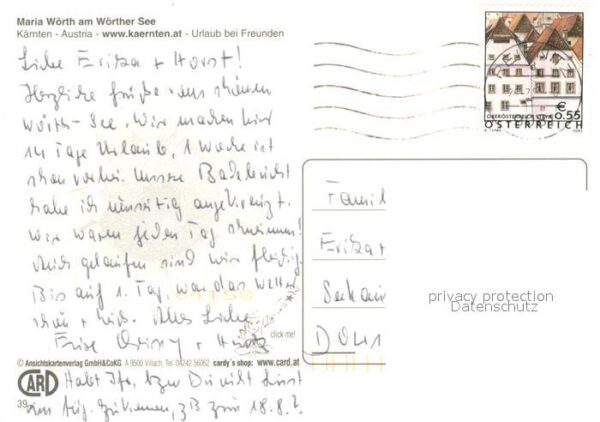 Maria Wörth am Wörther See
Kärnten - Austria - www.kaernten.at - Urlaub bei Freunden
Liebe Erika + Horst!
Herzliche Grüße vom schönen
Wörth-See. Wir machen hier
14 Tage Urlaub, 1 Woche ist
schon vorbei. Unsere Badebucht
habe ich umseitig angekreuzt.
Wir waren jeden Tag schwimmen!
Auch gelaufen sind wir fleißig.
Bis auf 1. Tag, war das Wetter
schön + heiß. Alles Liebe
Eure
click me!
© Ansichtskartenverlag GmbH&CoKG A 9500 Villach, Tel. 04242 56062 cardy's shop: www.card.at
CARD
39
Habt Ihr, bzw Du nicht Lust
im Aug. zu kommen, zB zum 18.8.?
€
0,55
OBERÖSTERREICH
ÖSTERREICH
Famil
Erika +
D 041
privacy protection
Datenschutz